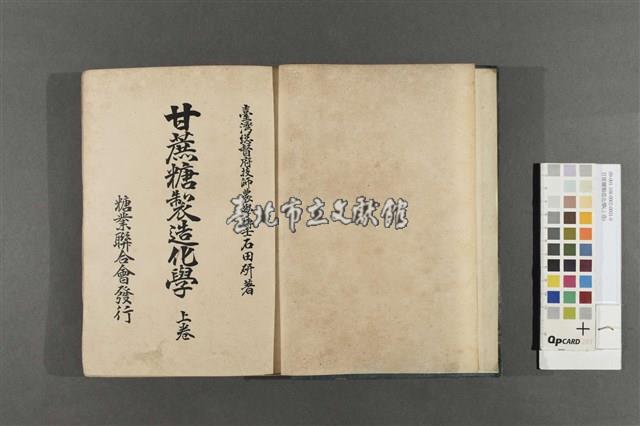 臺灣總督府技師農學士石田研著
甘蔗糖製造化學 上卷
糖業聯合會發行
臺北市立文獻館
QPCARD